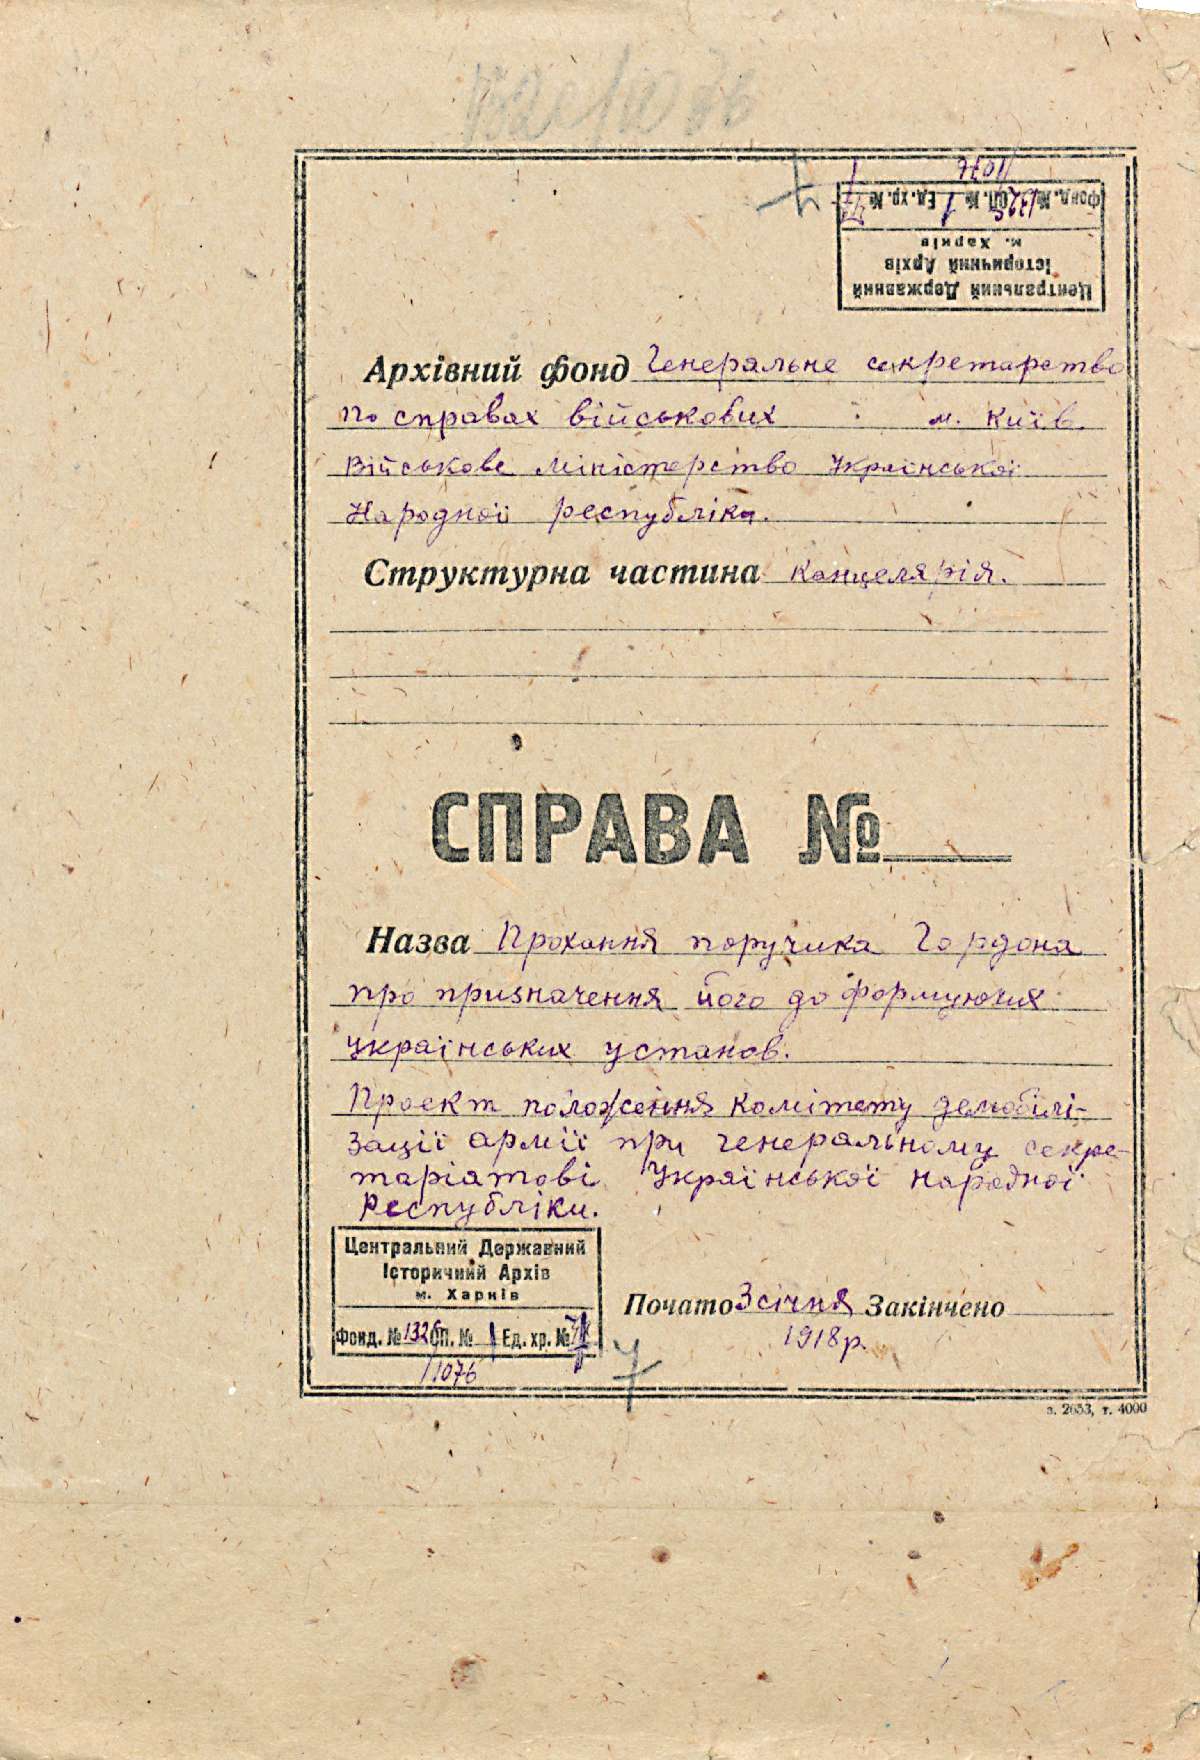 1076
Фонд. № 1326 ОП. № 1 Ед. хр. №
м. Харків
Історичний Архів
Центральний Державний
Архівний фонд Генеральне секретарство
по справах військових м. Київ.
Військове міністерство Української
Народної республіки.
Структурна частина канцелярія.
СПРАВА №
Назва Прохання поручика Гордона
про призначення його до формуючих
українських установ.
Проект положення комітету демобілі-
зації армії при генеральному секре-
таріатові Української народної
Республіки.
Центральний Державний
Історичний Архів
м. Харків
Фонд. № 1326 ОП. № 1 Ед. хр. №
1076
7
Почато 3 січня Закінчено
1918 р.
з. 2653, т. 4000